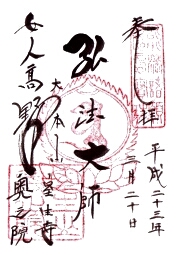 奉拝
平成二十三年
三月二十日
弘法大師
大本山
室生寺
女人高野
奥之院